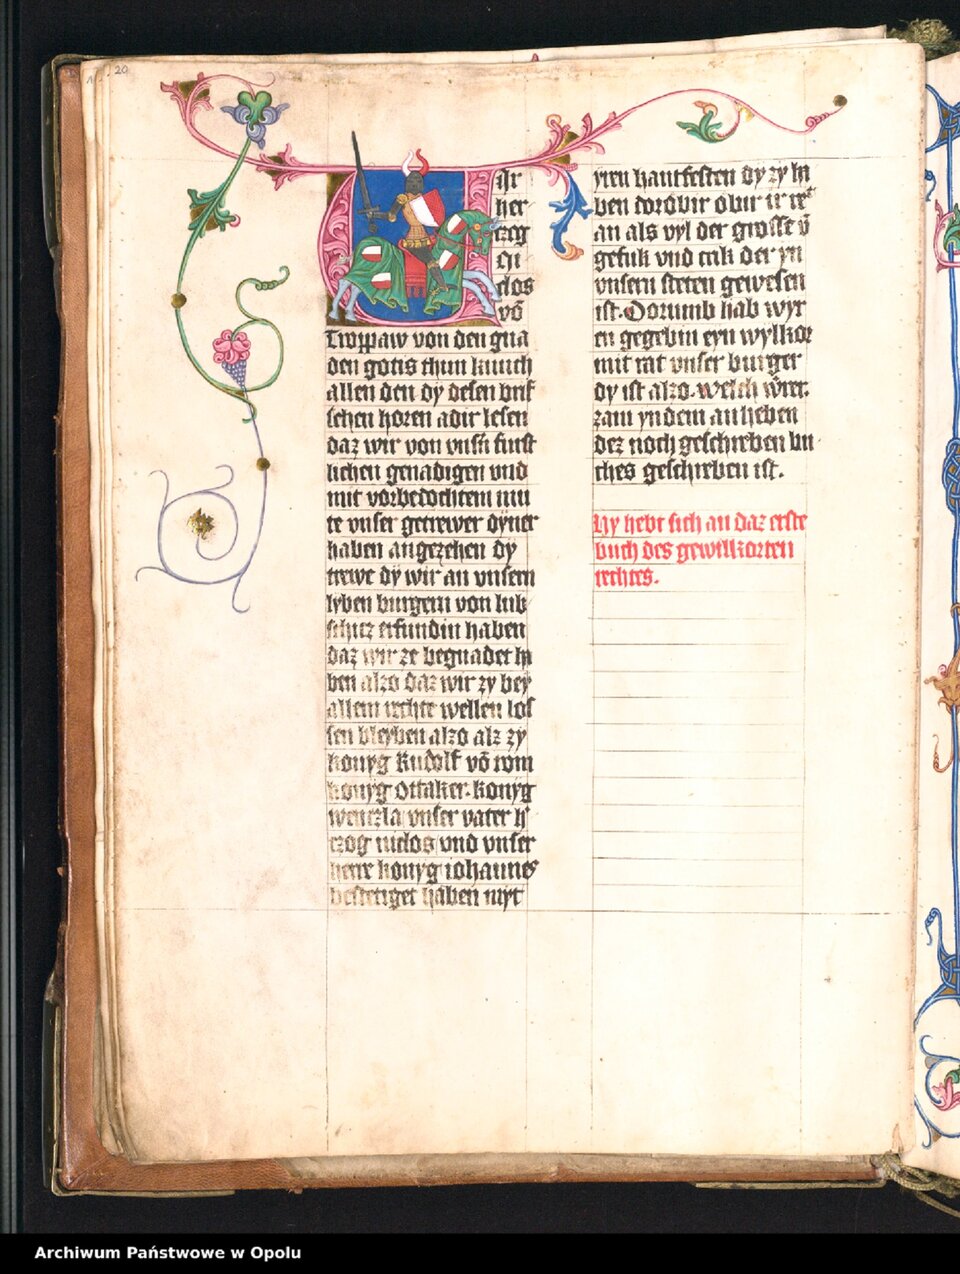 20
Wir
her
czog
Ni
clos
võ
Troppaw von den gna
den gotis thun kunth
allen den dy desen brif
sehen horen adir lesen
daz wir von vnsñ furst
lichen genadigen vnd
mit vorbedochtem mu
te vnser getrewer dyner
haben angezehen dy
trewe dÿ wir an vnsern
lyben burgern von lub
schicz erfundin haben
daz wir ze begnadet ha
ben alzo daz wir zy bey
allem rechte wellen los
sen bleyben alzo alz zy
konyg Rudolf võ rom
konyg Ottaker. konyg
wenczla vnser vater h'
czog niclos vnd vnser
herre konyg iohannes
bestetiget haben myt
yren hantfesten dy zy ha
ben dorobir obir ir re
an als vyl der grosse v̄
gefuk vnd enk der yn
vnsern steten gewesen
ist. Dorumb hab wyr
en gegebin eyn wylkor
mit rat vnser burger
dy ist alzo. welch
zam yn dem anheben
dez noch geschreben bu
ches geschreben ist.
Hy hebt sich an daz erste
buch des gewillkorten
rechtes.
Archiwum Państwowe w Opolu